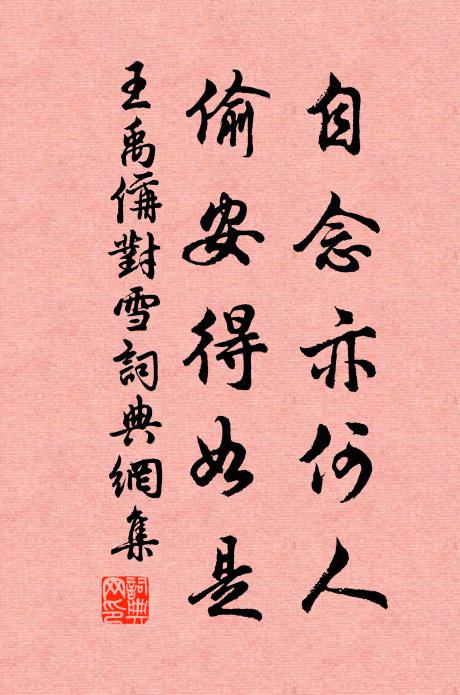 自念亦何人
偷安得如是
王禹偁對雪詞典網集
詞典網印